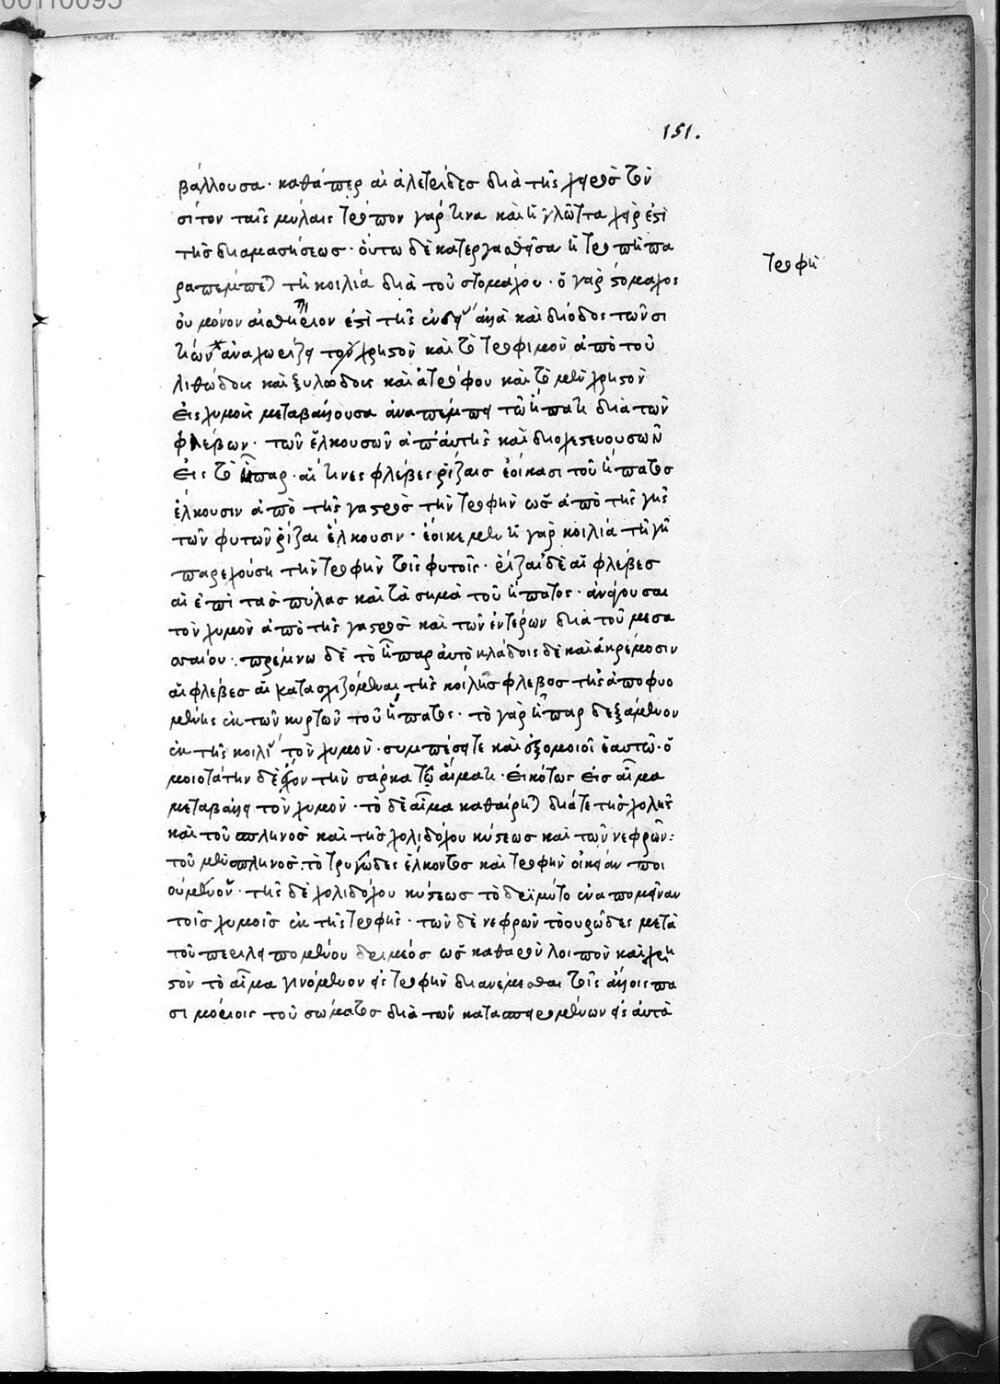 00110095
151.
βάλλουσα· καθάπερ αἱ ἀλετρίδες διὰ τῆς χειρὸς τὸν
σῖτον ταῖς μύλαις τρόπον γάρ τινα καὶ ἡ γλῶττα χείρ ἐστι
τῆς διαμασήσεως· οὕτω δὲ κατεργασθεῖσα ἡ τροπὴ πα
τροφὴ
ραπέμπεται τῇ κοιλία διὰ τοῦ στομάχου· ὁ γὰρ στόμαχος
οὐ μόνον αἰσθητήριον ἐστὶ τῆς ἐνδείας ἀλλὰ καὶ δίοδος τῶν σι
τίων ἀναχωρίζει τὸν χρηστὸν καὶ τὸ τρόφιμον ἀπὸ τοῦ
λιθώδους καὶ ξυλώδους καὶ ἀτρόφου καὶ τὸ μὲν χρηστὸν
εἰς χυμοὺς μεταβάλλουσα ἀναπέμπει τῶ ἥπατι διὰ τῶν
φλεβῶν· τῶν ἑλκουσῶν ἀπ' αὐτῆς καὶ διοχετευουσῶν
εἰς τὸ ἧπαρ· αἵ τινες φλέβες ῥίζαις ἐοίκασι τοῦ ἥπατος
ἕλκουσιν ἀπὸ τῆς γαστρὸς τὴν τροφὴν ὡς ἀπὸ τῆς γῆς
τῶν φυτῶν ῥίζαι ἕλκουσιν· ἔοικε μὲν ἡ γὰρ κοιλία τῆ γῆ
παρεχούση τὴν τροφὴν τοῖς φυτοῖς· ῥίζαι δὲ αἱ φλέβες
αἱ ἐπὶ τὰς πύλας καὶ τὰ σιμὰ τοῦ ἥπατος· ἀνάγουσαι
τὸν χυμὸν ἀπὸ τῆς γαστρὸς καὶ τῶν ἐντέρων διὰ τοῦ μεσα
ραίου· πρέμνω δὲ τὸ ἧπαρ αὐτὸ κλάδοις δὲ καὶ ἀκρέμοσιν
αἱ φλέβες αἱ κατασχιζόμεναι τῆς κοίλης φλεβὸς τῆς ἀποφυο
μένης ἐκ τῶν κυρτῶν τοῦ ἥπατος· τὸ γὰρ ἧπαρ δεξάμενον
ἐκ τῆς κοιλίας τὸν χυμὸν· συμπέσσει τε καὶ ἐξομοιοῖ ἑαυτῶ· ὁ
μοιοτάτην δὲ ἔχον τὴν σάρκα τῶ αἵματι· εἰκότως εἰς αἷμα
μεταβάλλει τὸν χυμὸν· τὸ δὲ αἷμα καθαίρεται διά τε τῆς χολῆς
καὶ τοῦ σπληνὸς καὶ τῆς χοληδόχου κύστεως καὶ τῶν νεφρῶν:
τοῦ μὲν σπληνὸς τὸ τρυγῶδες ἕλκοντος καὶ τροφὴν οἰκείαν ποι
ουμένου· τῆς δὲ χοληδόχου κύστεως τὸ δριμύ τὸ ἐναπομεῖναν
τοῖς χυμοῖς ἐκ τῆς τροφῆς· τῶν δὲ νεφρῶν τὸ οὐρῶδες μετὰ
τοῦ περιλειπομένου δριμέος ὡς καθαρὸν λοιπὸν καὶ χρη
στὸν τὸ αἷμα γινόμενον εἰς τροφὴν διανέμεσθαι τοῖς ἄλλοις πᾶ
σι μορίοις τοῦ σώματος διὰ τῶν κατασπειρομένων εἰς αὐτὰ